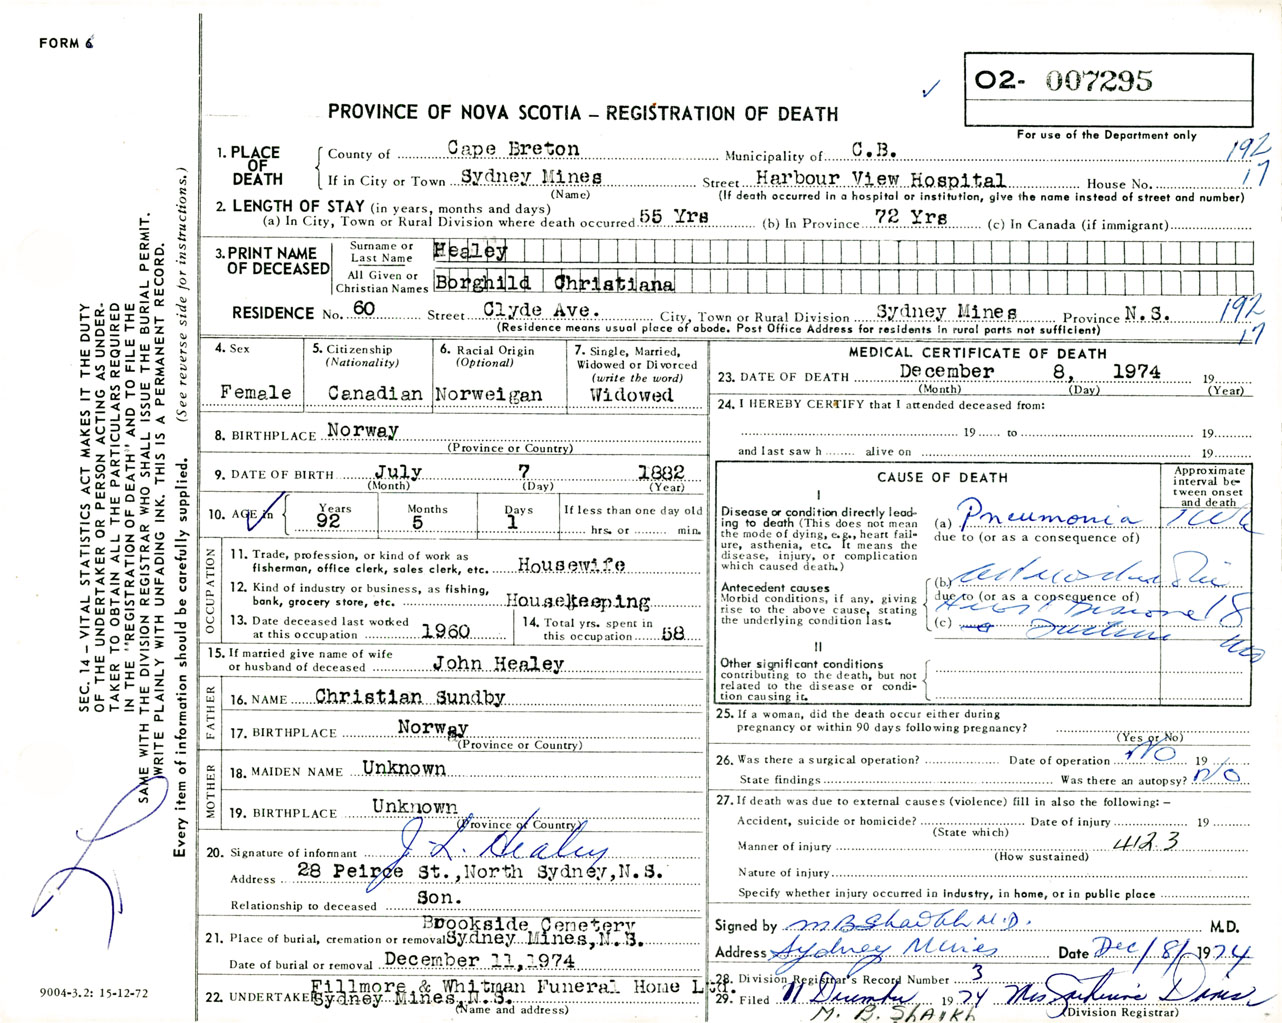 FORM 6
O2- 007295
PROVINCE OF NOVA SCOTIA – REGISTRATION OF DEATH
For use of the Department only
1. PLACE OF DEATH
County of Cape Breton Municipality of C.B. 192
If in City or Town Sydney Mines Street Harbour View Hospital House No. 17
(Name) (If death occurred in a hospital or institution, give the name instead of street and number)
2. LENGTH OF STAY (in years, months and days)
(a) In City, Town or Rural Division where death occurred 55 Yrs (b) In Province 72 Yrs (c) In Canada (if immigrant)
3. PRINT NAME OF DECEASED
Surname or Last Name Healey
All Given or Christian Names Borghild Christiana
RESIDENCE No. 60 Street Clyde Ave. City, Town or Rural Division Sydney Mines Province N.S. 192
(Residence means usual place of abode. Post Office Address for residents in rural parts not sufficient) 17
4. Sex
Female
5. Citizenship
(Nationality)
Canadian
6. Racial Origin
(Optional)
Norweigan
7. Single, Married,
Widowed or Divorced
(write the word)
Widowed
8. BIRTHPLACE Norway
(Province or Country)
9. DATE OF BIRTH July 7 1882
(Month) (Day) (Year)
10. AGE in
Years Months Days If less than one day old
92 5 1 hrs. or min.
OCCUPATION
11. Trade, profession, or kind of work as
fisherman, office clerk, sales clerk, etc. Housewife
12. Kind of industry or business, as fishing,
bank, grocery store, etc. Housekeeping
13. Date deceased last worked
at this occupation 1960
14. Total yrs. spent in
this occupation 58
15. If married give name of wife
or husband of deceased John Healey
FATHER
16. NAME Christian Sundby
17. BIRTHPLACE Norway
(Province or Country)
MOTHER
18. MAIDEN NAME Unknown
19. BIRTHPLACE Unknown
(Province or Country)
20. Signature of informant J. L. Healey
Address 28 Peirce St.,North Sydney,N.S.
Relationship to deceased Son.
Brookside Cemetery
21. Place of burial, cremation or removal Sydney Mines,N.S.
Date of burial or removal December 11,1974
Fillmore & Whitman Funeral Home Ltd.
22. UNDERTAKER Sydney Mines,N.S.
(Name and address)
MEDICAL CERTIFICATE OF DEATH
23. DATE OF DEATH December 8, 1974 19
(Month) (Day) (Year)
24. I HEREBY CERTIFY that I attended deceased from:
19 to 19
and last saw h alive on 19
CAUSE OF DEATH
Approximate
interval be-
tween onset
and death
I
Disease or condition directly lead-
ing to death (This does not mean
the mode of dying, e.g., heart fail-
ure, asthenia, etc. It means the
disease, injury, or complication
which caused death.)
(a) Pneumonia
due to (or as a consequence of)
Antecedent causes
Morbid conditions, if any, giving
rise to the above cause, stating
the underlying condition last.
(b)
due to (or as a consequence of)
(c)
II
Other significant conditions
contributing to the death, but not
related to the disease or condi-
tion causing it.
25. If a woman, did the death occur either during
pregnancy or within 90 days following pregnancy?
(Yes or No)
NO
26. Was there a surgical operation? Date of operation 19
State findings Was there an autopsy? N/O
27. If death was due to external causes (violence) fill in also the following: –
Accident, suicide or homicide? Date of injury 19
(State which)
Manner of injury 412.3
(How sustained)
Nature of injury
Specify whether injury occurred in industry, in home, or in public place
Signed by M B Shaikh M.D. M.D.
Address Sydney Mines Date Dec/8/1974
28. Division Registrar's Record Number 3
29. Filed 11 December 1974 Mrs
(Division Registrar)
M. B. SHAIKH
SEC. 14 – VITAL STATISTICS ACT MAKES IT THE DUTY
OF THE UNDERTAKER OR PERSON ACTING AS UNDER-
TAKER TO OBTAIN ALL THE PARTICULARS REQUIRED
IN THE "REGISTRATION OF DEATH" AND TO FILE THE
SAME WITH THE DIVISION REGISTRAR WHO SHALL ISSUE THE BURIAL PERMIT.
WRITE PLAINLY WITH UNFADING INK. THIS IS A PERMANENT RECORD.
Every item of information should be carefully supplied. (See reverse side for instructions.)
9004-3.2: 15-12-72